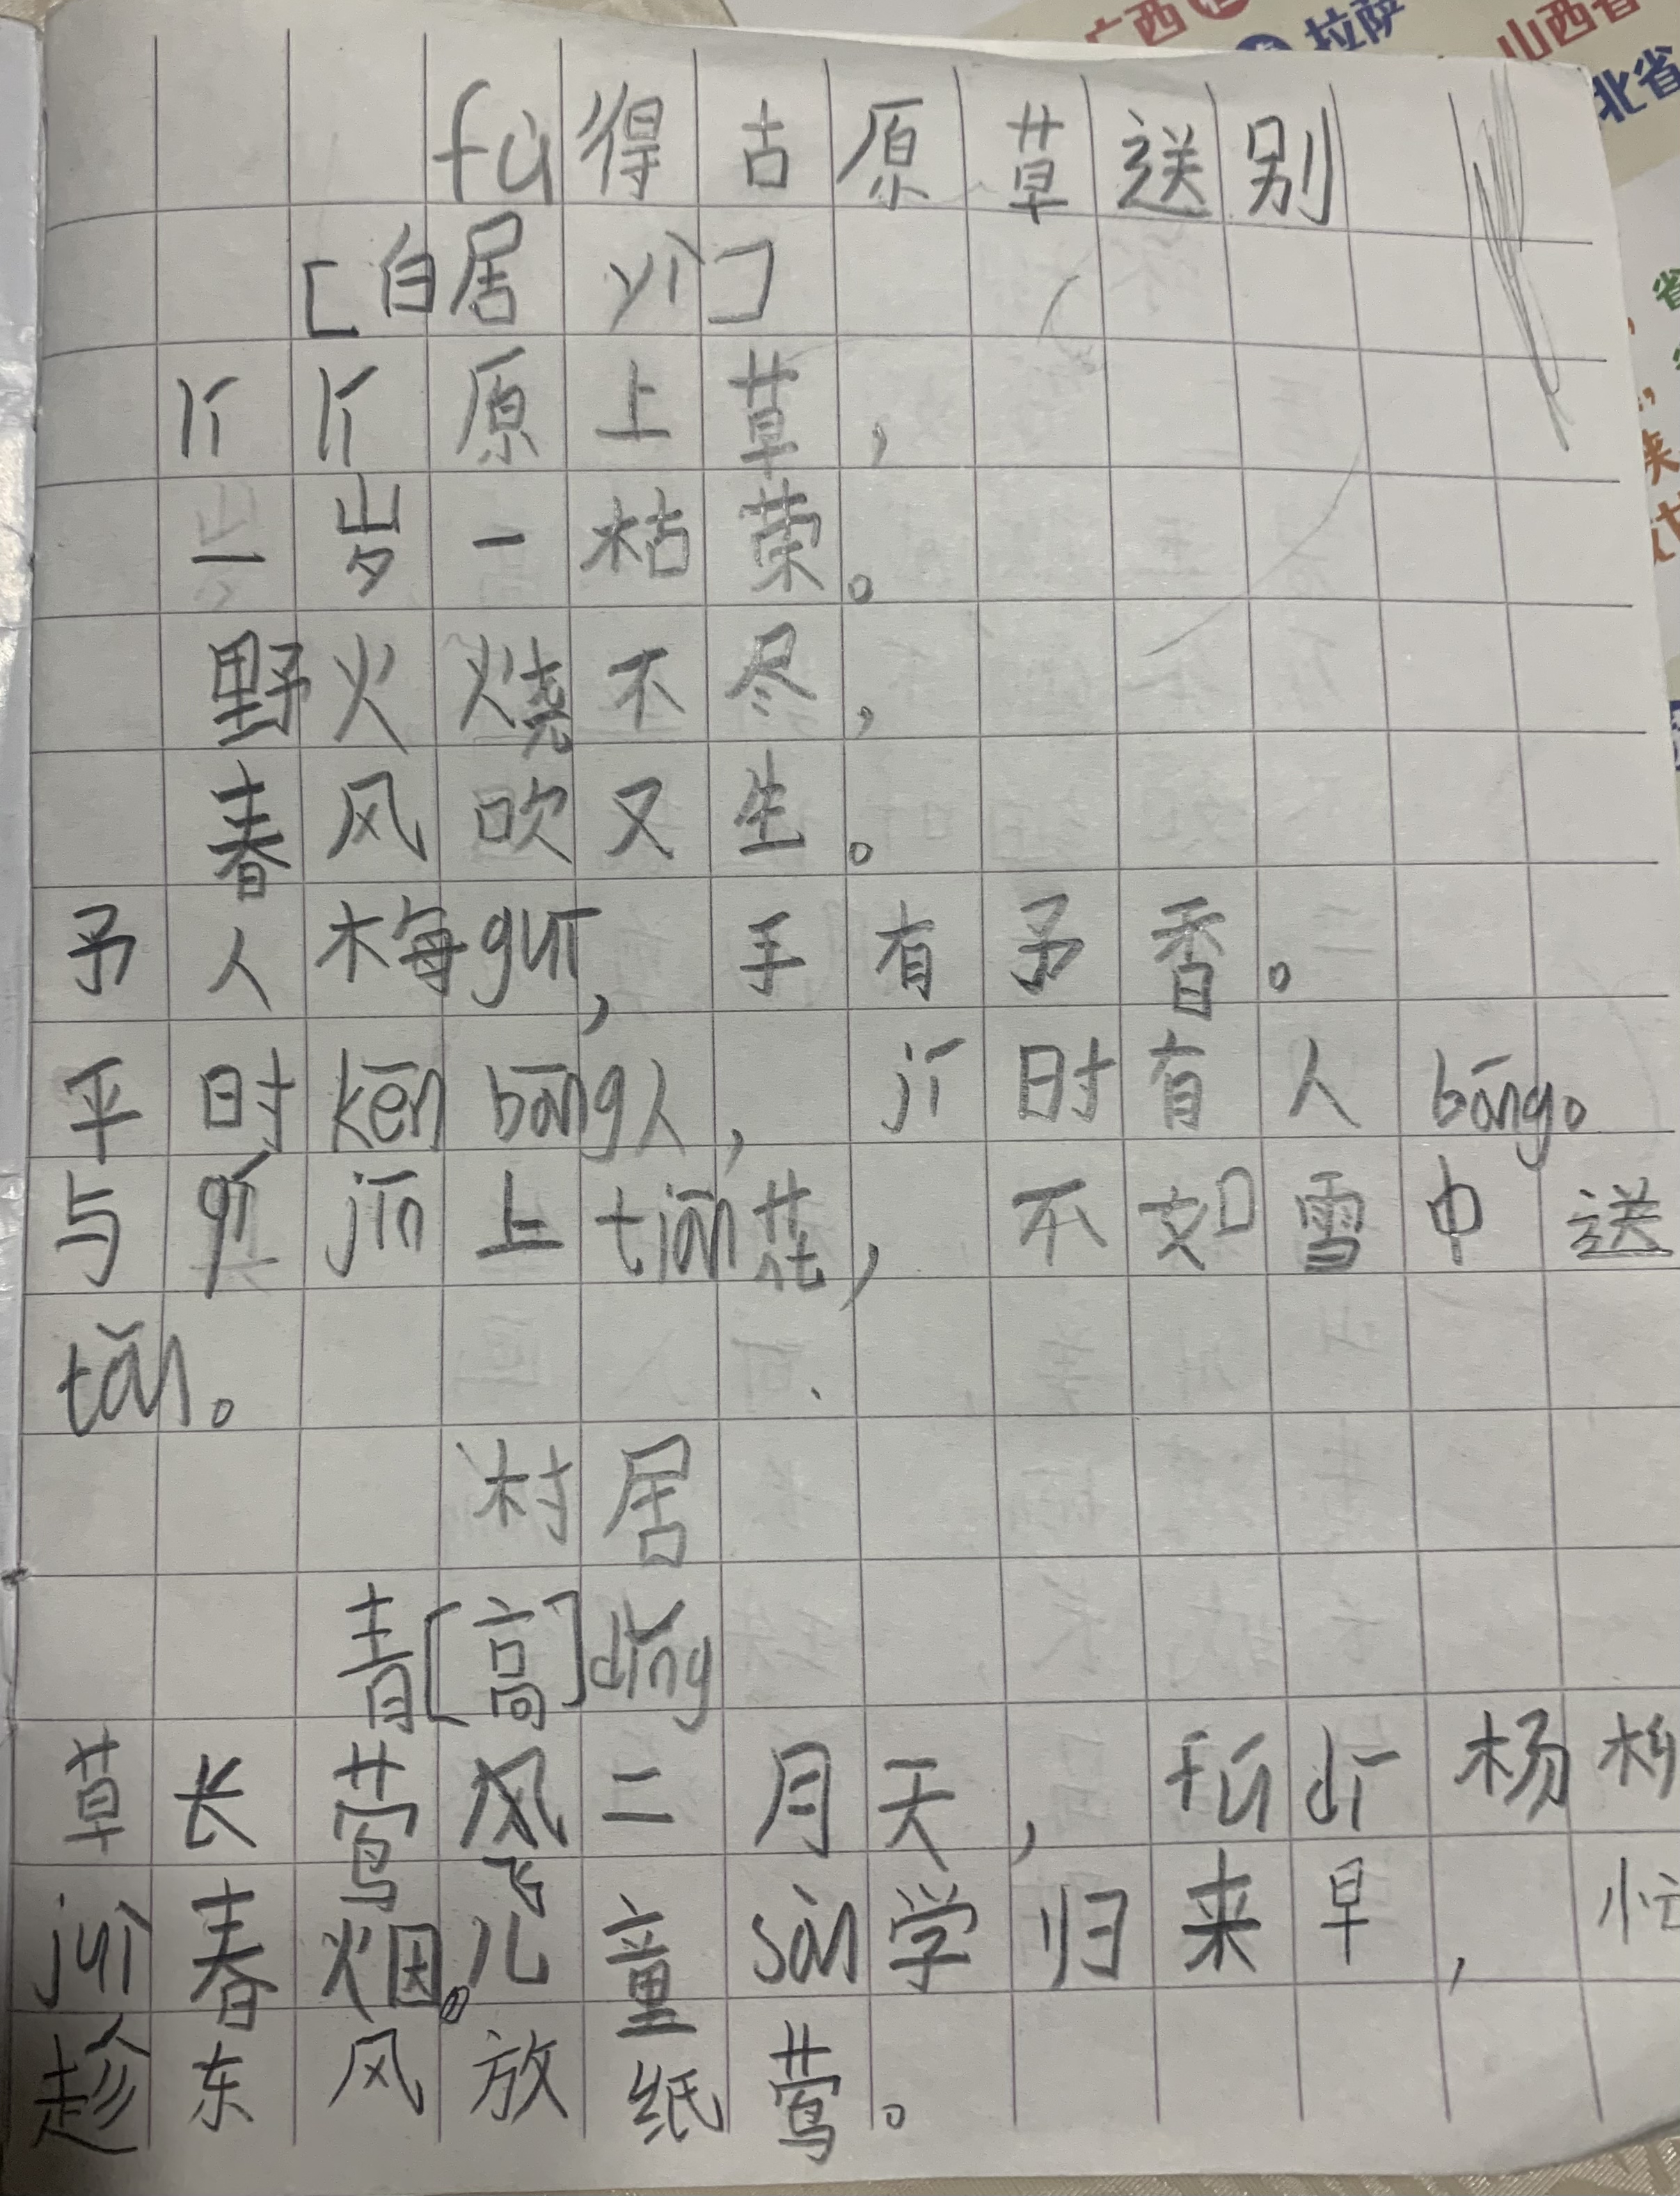 广西
拉萨
山西省
北省
fù得古原草送别
[白居yì]
lí lí原上草，
一岁一枯荣。
野火烧不尽，
春风吹又生。
予人梅guī，手有予香。
平时kěn bāng人，jí时有人bāng。
与qí jǐn上tiān花，不如雪中送
tàn。
村居
青[高]dǐng
草长莺飞二月天，fú dī杨柳
jùi春烟。儿童sàn学归来早，忙
趁东风放纸莺。